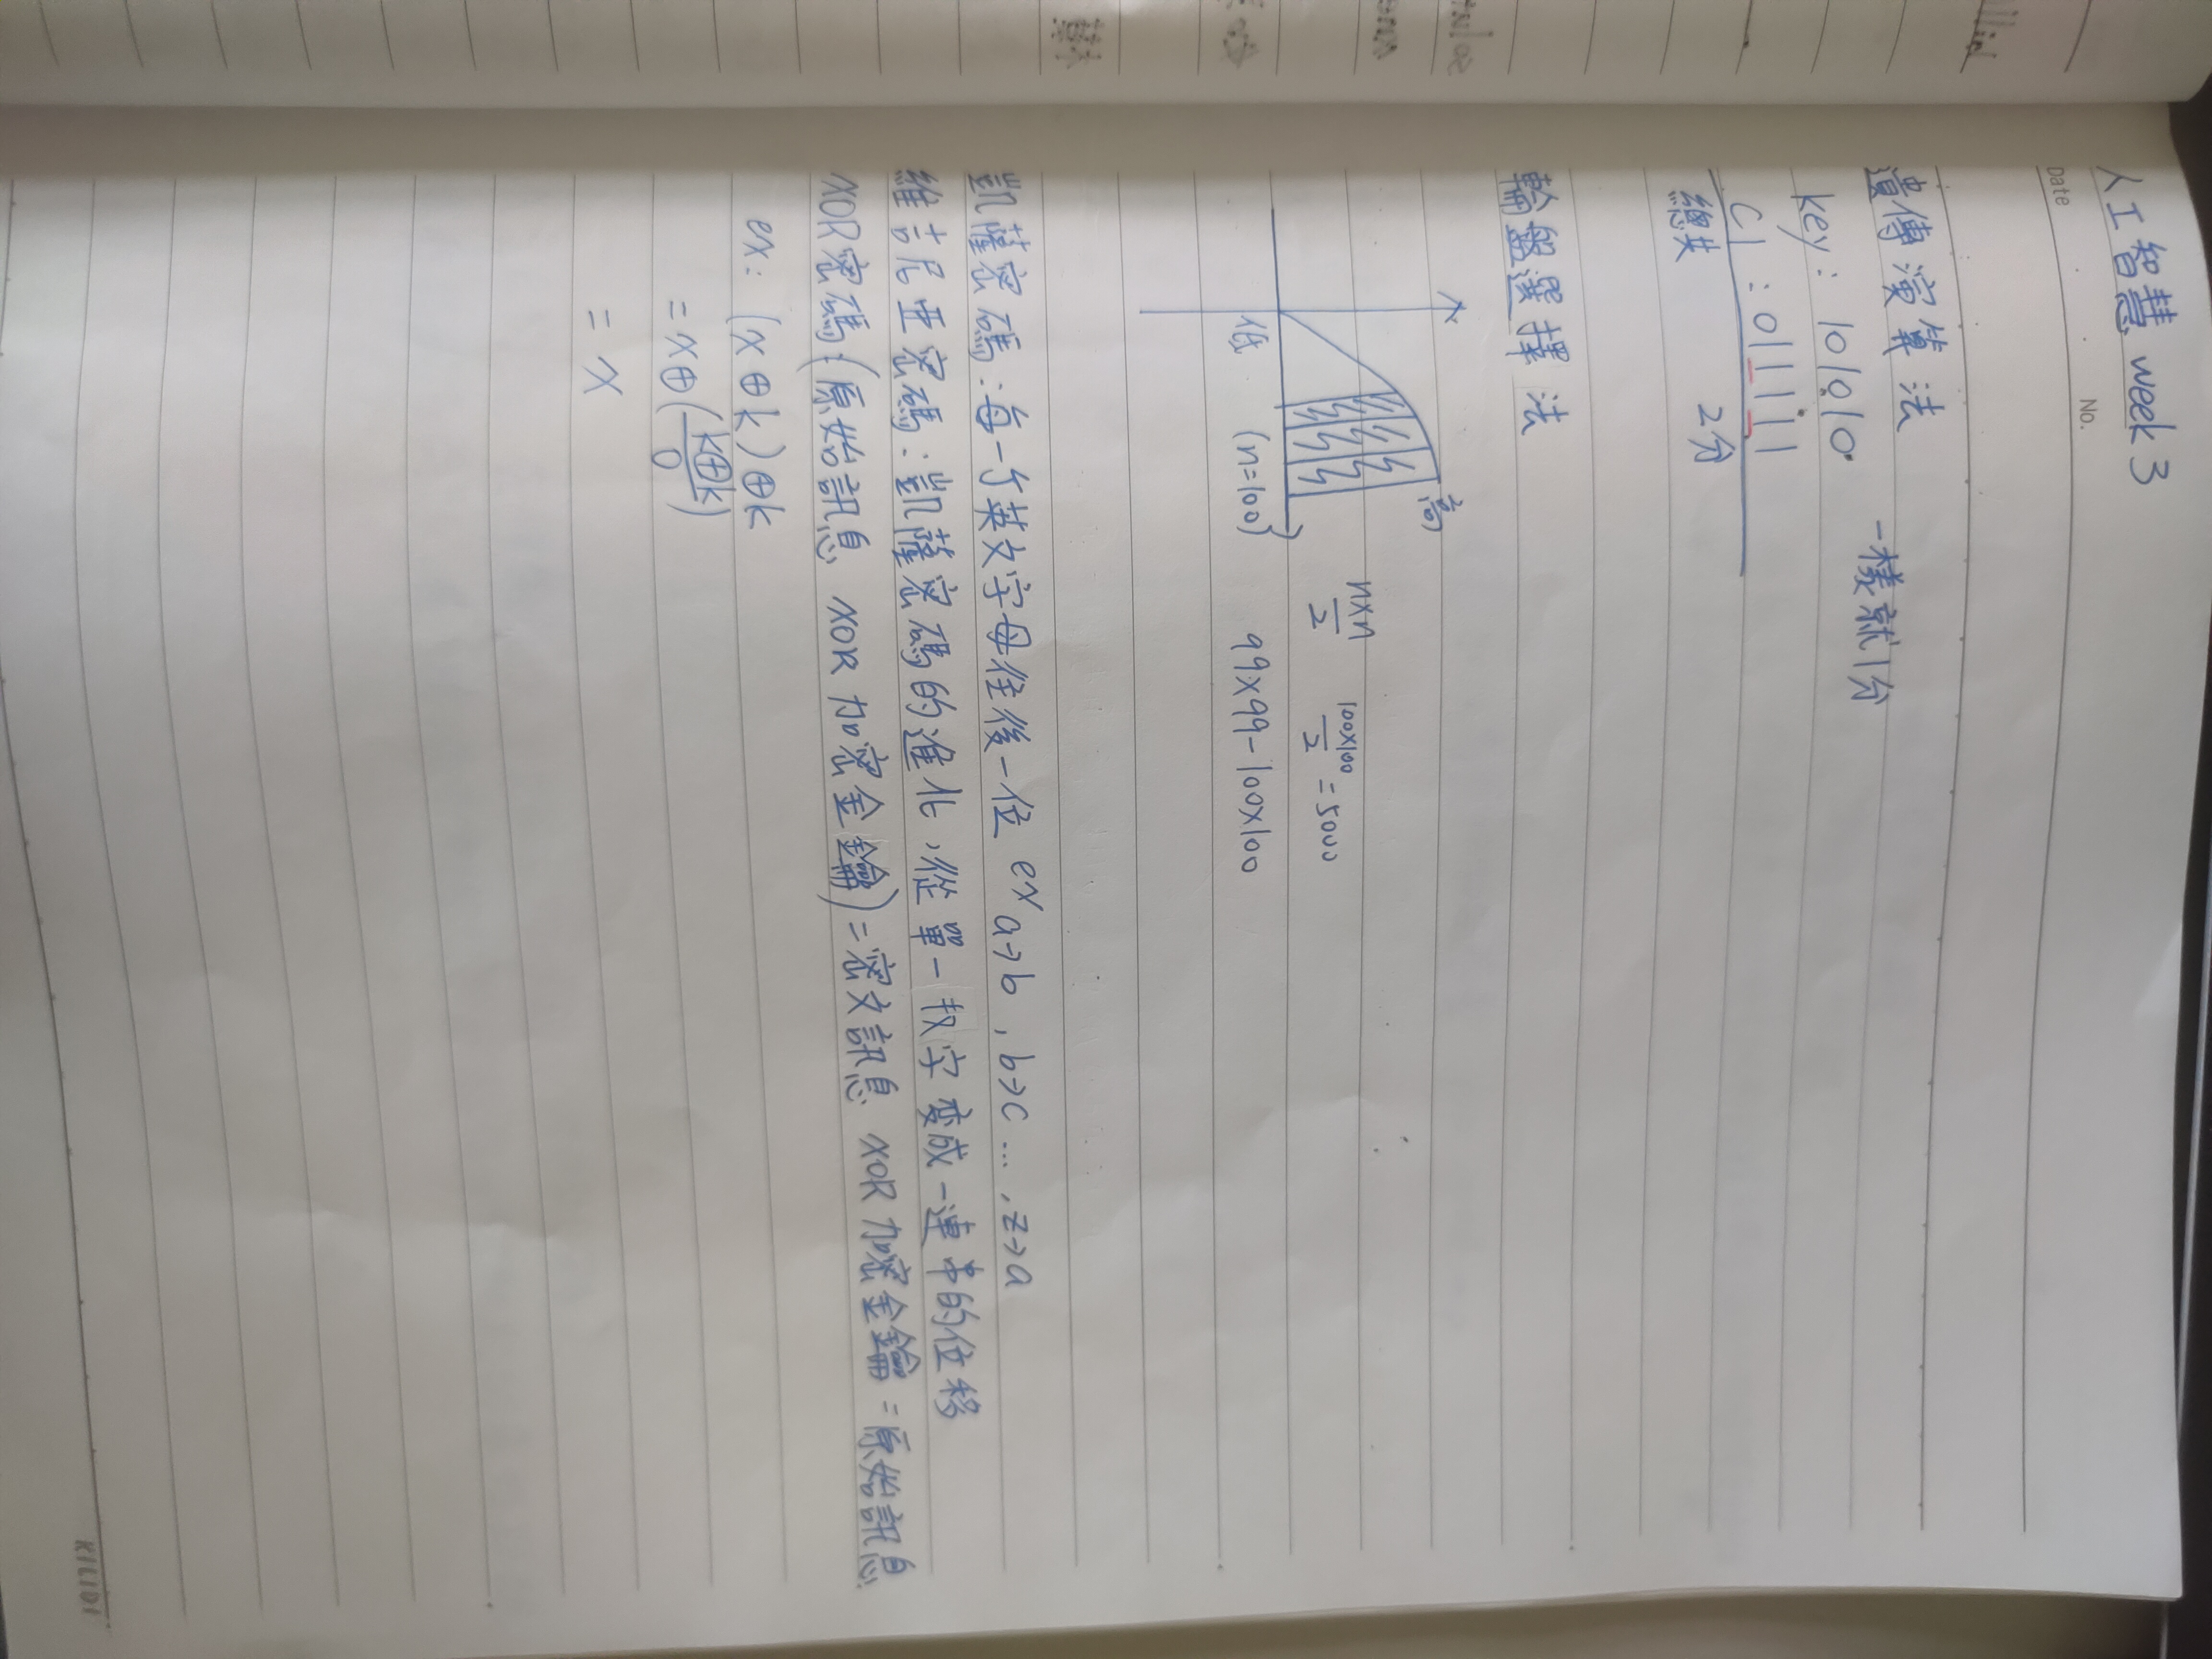 人工智慧 week 3
Date No.
遺傳演算法
一樣就1分
key: 101010
C1: 011111
總共 2分
輪盤選擇法
高
n×n/2 100×100/2 = 5000
低 (n=100) 99×99-100×100
凱薩密碼:每一个英文字母往後一位 ex a→b , b→c ... , z→a
維吉尼亞密碼:凱薩密碼的進化,從單一 字 変成一連串的位移
XOR密碼:(原始訊息 XOR 加密金鑰)=密文訊息 XOR 加密金鑰=原始訊息
ex: (x⊕k)⊕k
= x⊕(k⊕k/0)
= x
KILIDI